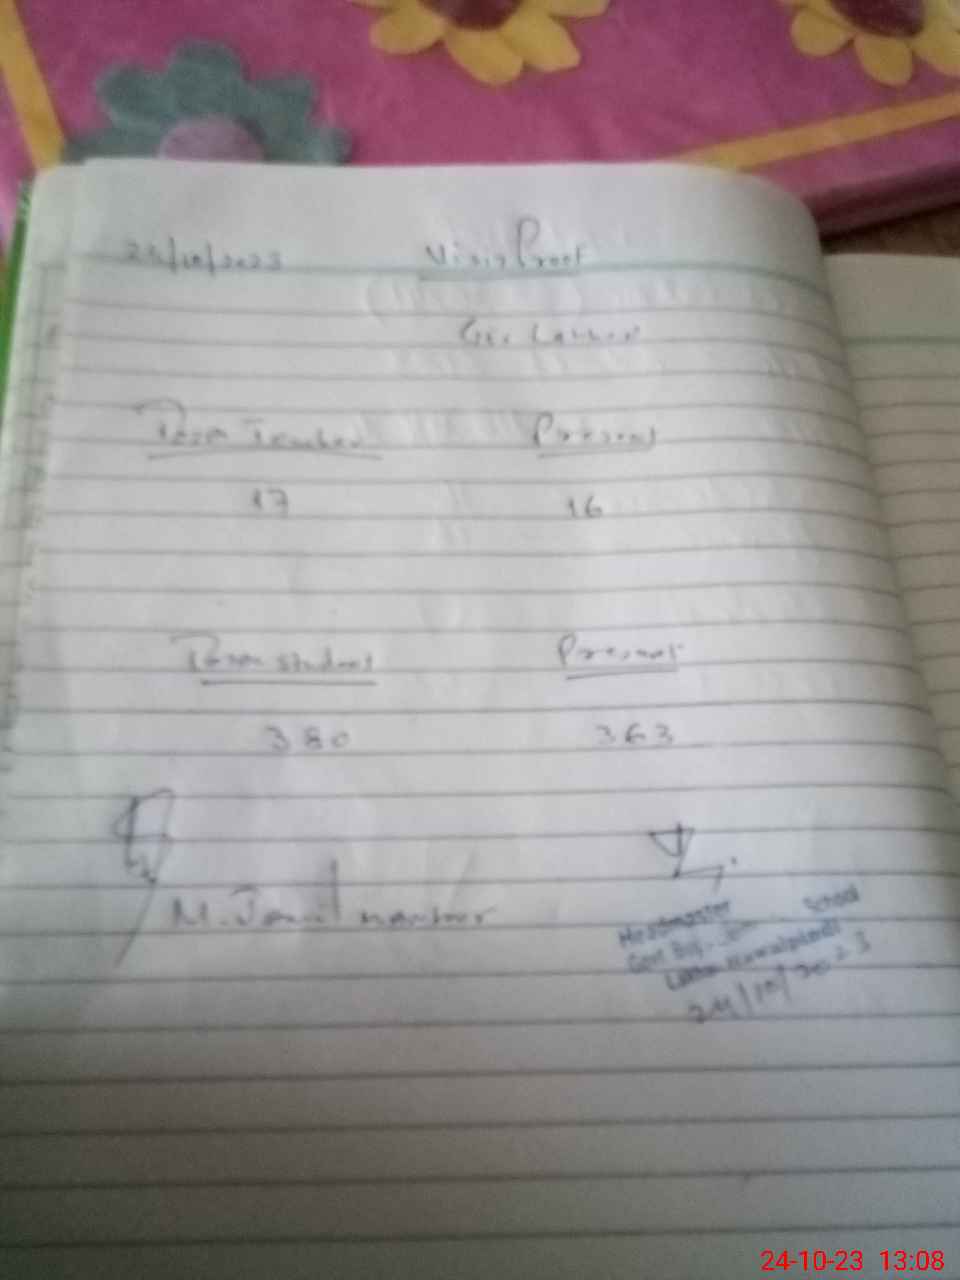 24/10/2023 Visit Proof
Total Teacher Present
17 16
Total student Present
380 363
M. Jamil
Headmaster School
24/10/2023
24-10-23 13:08